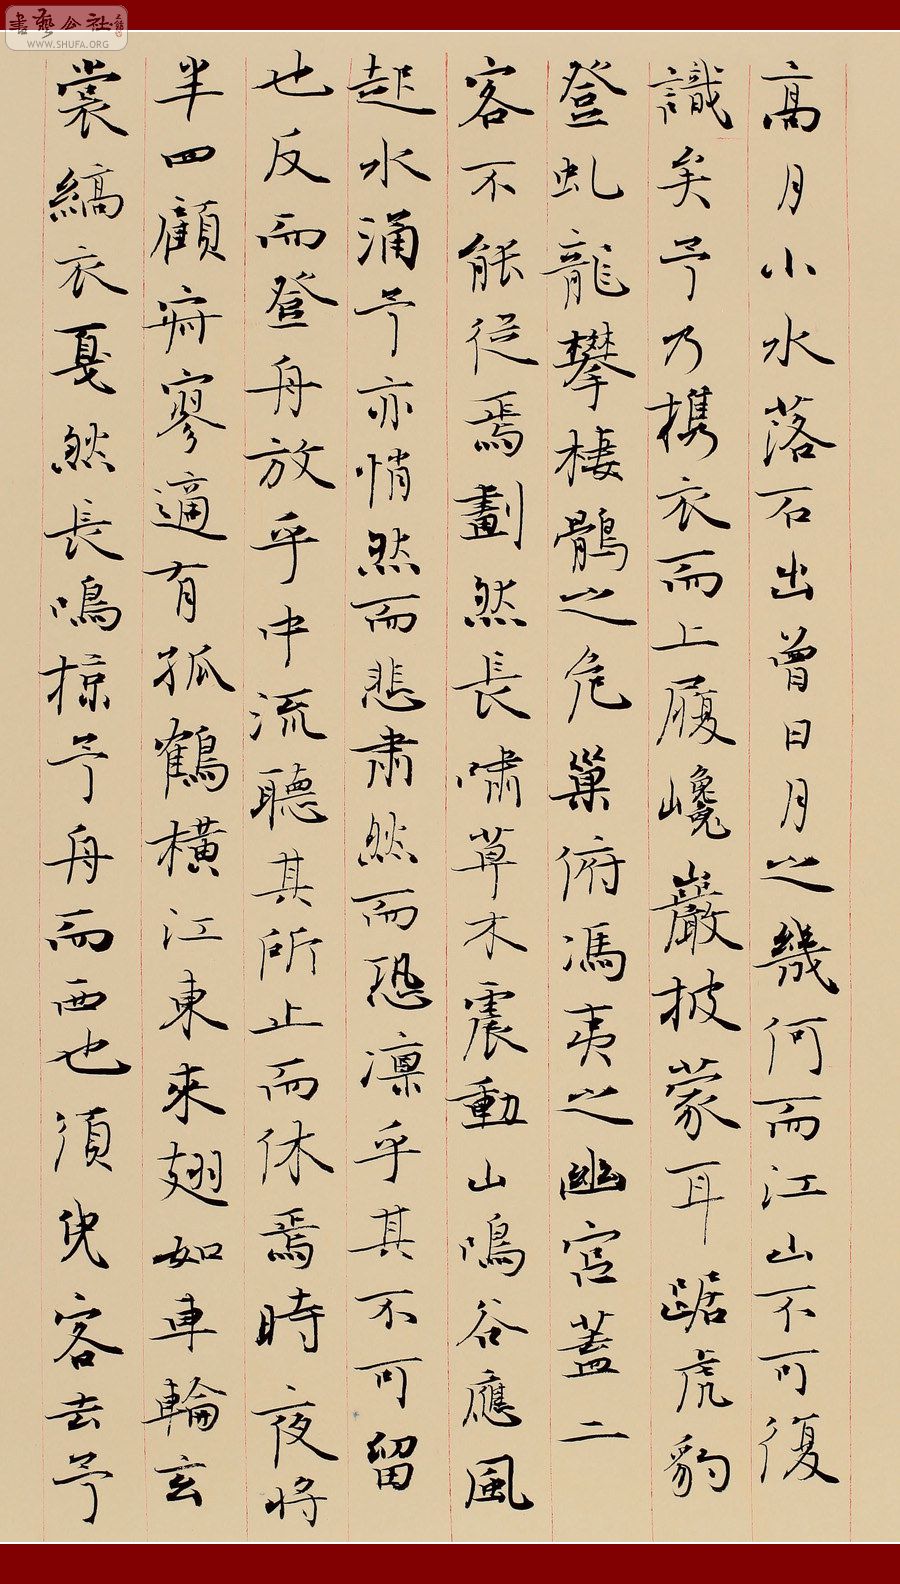 書藝公社
WWW.SHUFA.ORG
高月小水落石出曾日月之幾何而江山不可復
識矣予乃攜衣而上履巉巖披蒙茸踞虎豹
登虬龍攀棲鶻之危巢俯馮夷之幽宮蓋二
客不能從焉劃然長嘯草木震動山鳴谷應風
起水涌予亦悄然而悲肅然而恐凜乎其不可留
也反而登舟放乎中流聽其所止而休焉時夜將
半四顧寂寥適有孤鶴橫江東來翅如車輪玄
裳縞衣戛然長鳴掠予舟而西也須臾客去予